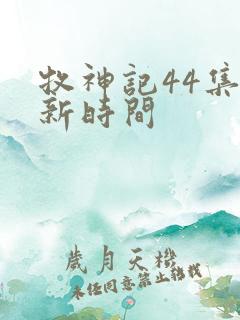 牧神記44集
新時間
歲月天機
未任同意禁止轉載